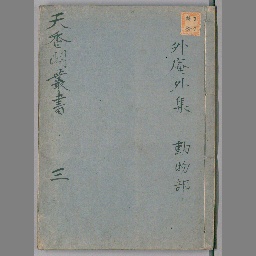 外庵外集 動物部
天香閣叢書 三